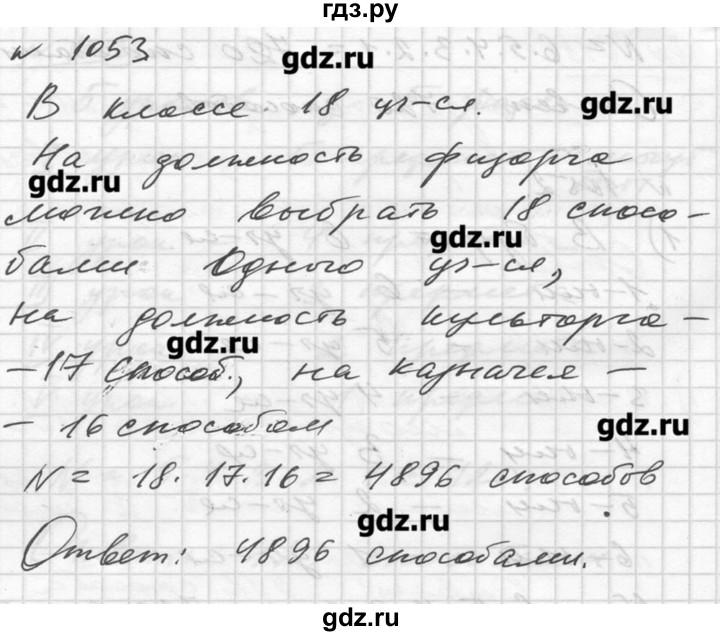 гдз.ру
№ 1053
gdz.ru
В классе 18 уч-ся.
gdz.ru
На должность физорга
gdz.ru
можно выбрать 18 спосо-
gdz.ru
бами одного уч-ся,
на должность культорга -
gdz.ru
- 17 способ., на казначея -
- 16 способам
gdz.ru
N = 18. 17. 16 = 4896 способов
gdz.ru
Ответ: 4896 способами.
gdz.ru